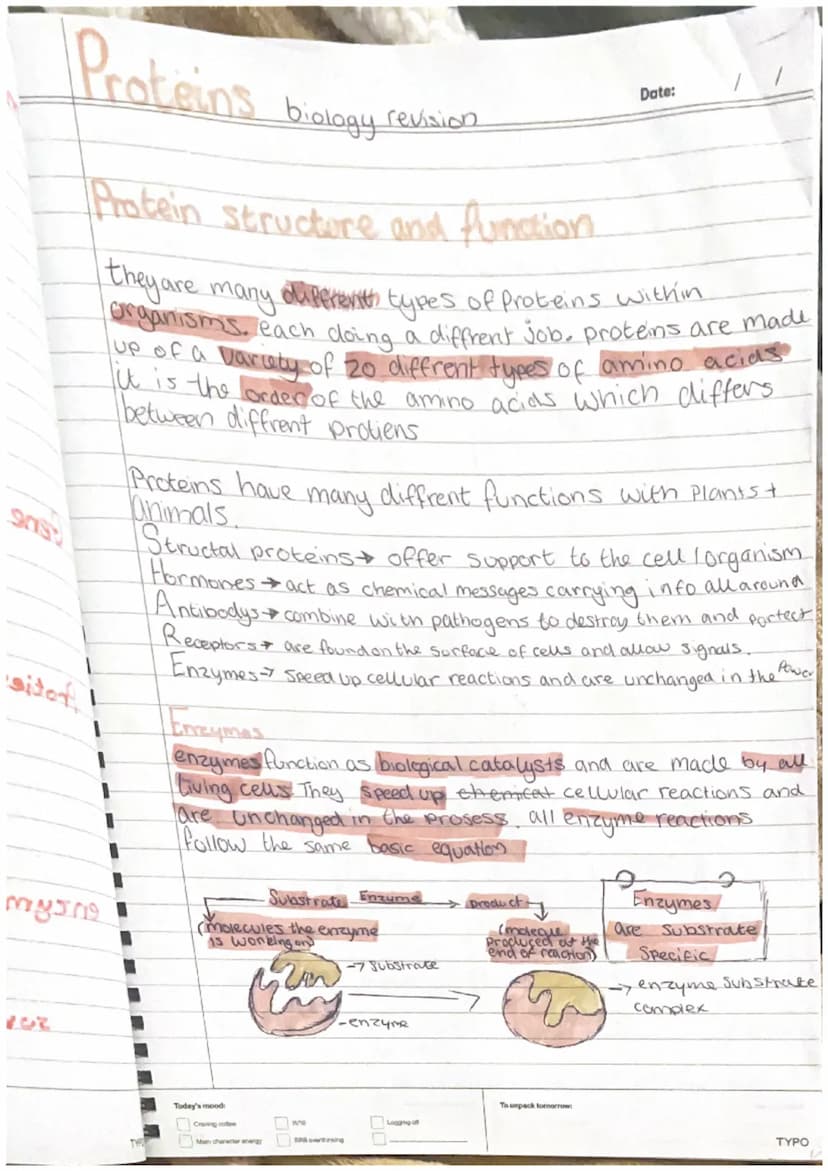 Proteins biology revision
Date: / /
Protein structure and function
they are many different types of proteins within
organisms. each doing a diffrent job. proteins are made
up of a variety of 20 diffrent types of amino acids
it is the order of the amino acids which differs
between diffrent protiens
Proteins have many diffrent functions with Plants +
animals.
Structal proteins → offer support to the cell / organism
Hormones → act as chemical messages carrying info all around
Antibodys → combine with pathogens to destroy them and portect
Receptors → are found on the surface of cells and allow signals.
Enzymes → speed up cellular reactions and are unchanged in the
Enzymes
enzymes function as biological catalysts and are made by all
living cells They speed up chemical cellular reactions and
are unchanged in the prosess. all enzyme reactions
follow the same basic equation
Substrate Enzyme → product
(molecules the enzyme
is working on)
produced at the
end of reaction)
Enzymes
are Substrate
Specific
→ substrate
- enzyme
→ enzyme substrate
complex
Today's mood:
Craving coffee
Logging off
Main character energy
To unpack tomorrow:
TYPO